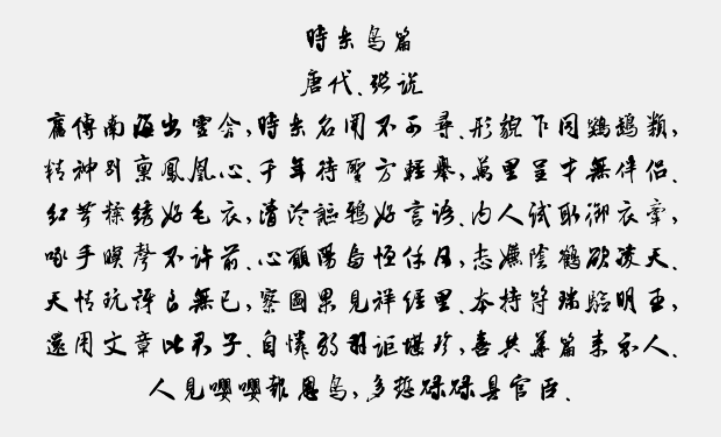 時樂鳥篇
唐代、張說
舊傳南海出靈禽,時樂名聞不可尋、形貌乍同鸚鵡類,
精神別稟鳳凰心、千年待聖方輕舉,萬里呈才無伴侶、
紅茸糅繡好毛衣,清泠謳鴉好言語、内人試取御衣牽,
啄手瞋聲不許前、心願陽烏恒保日,志嫌陰鶴欲凌天、
天情玩訝良無已,察圖果見祥經里、本持符瑞驗明王,
還用文章比君子、自憐弱羽詎堪珍,喜共華篇來示人、
人見嚶嚶報恩鳥,多慙碌碌具官臣、